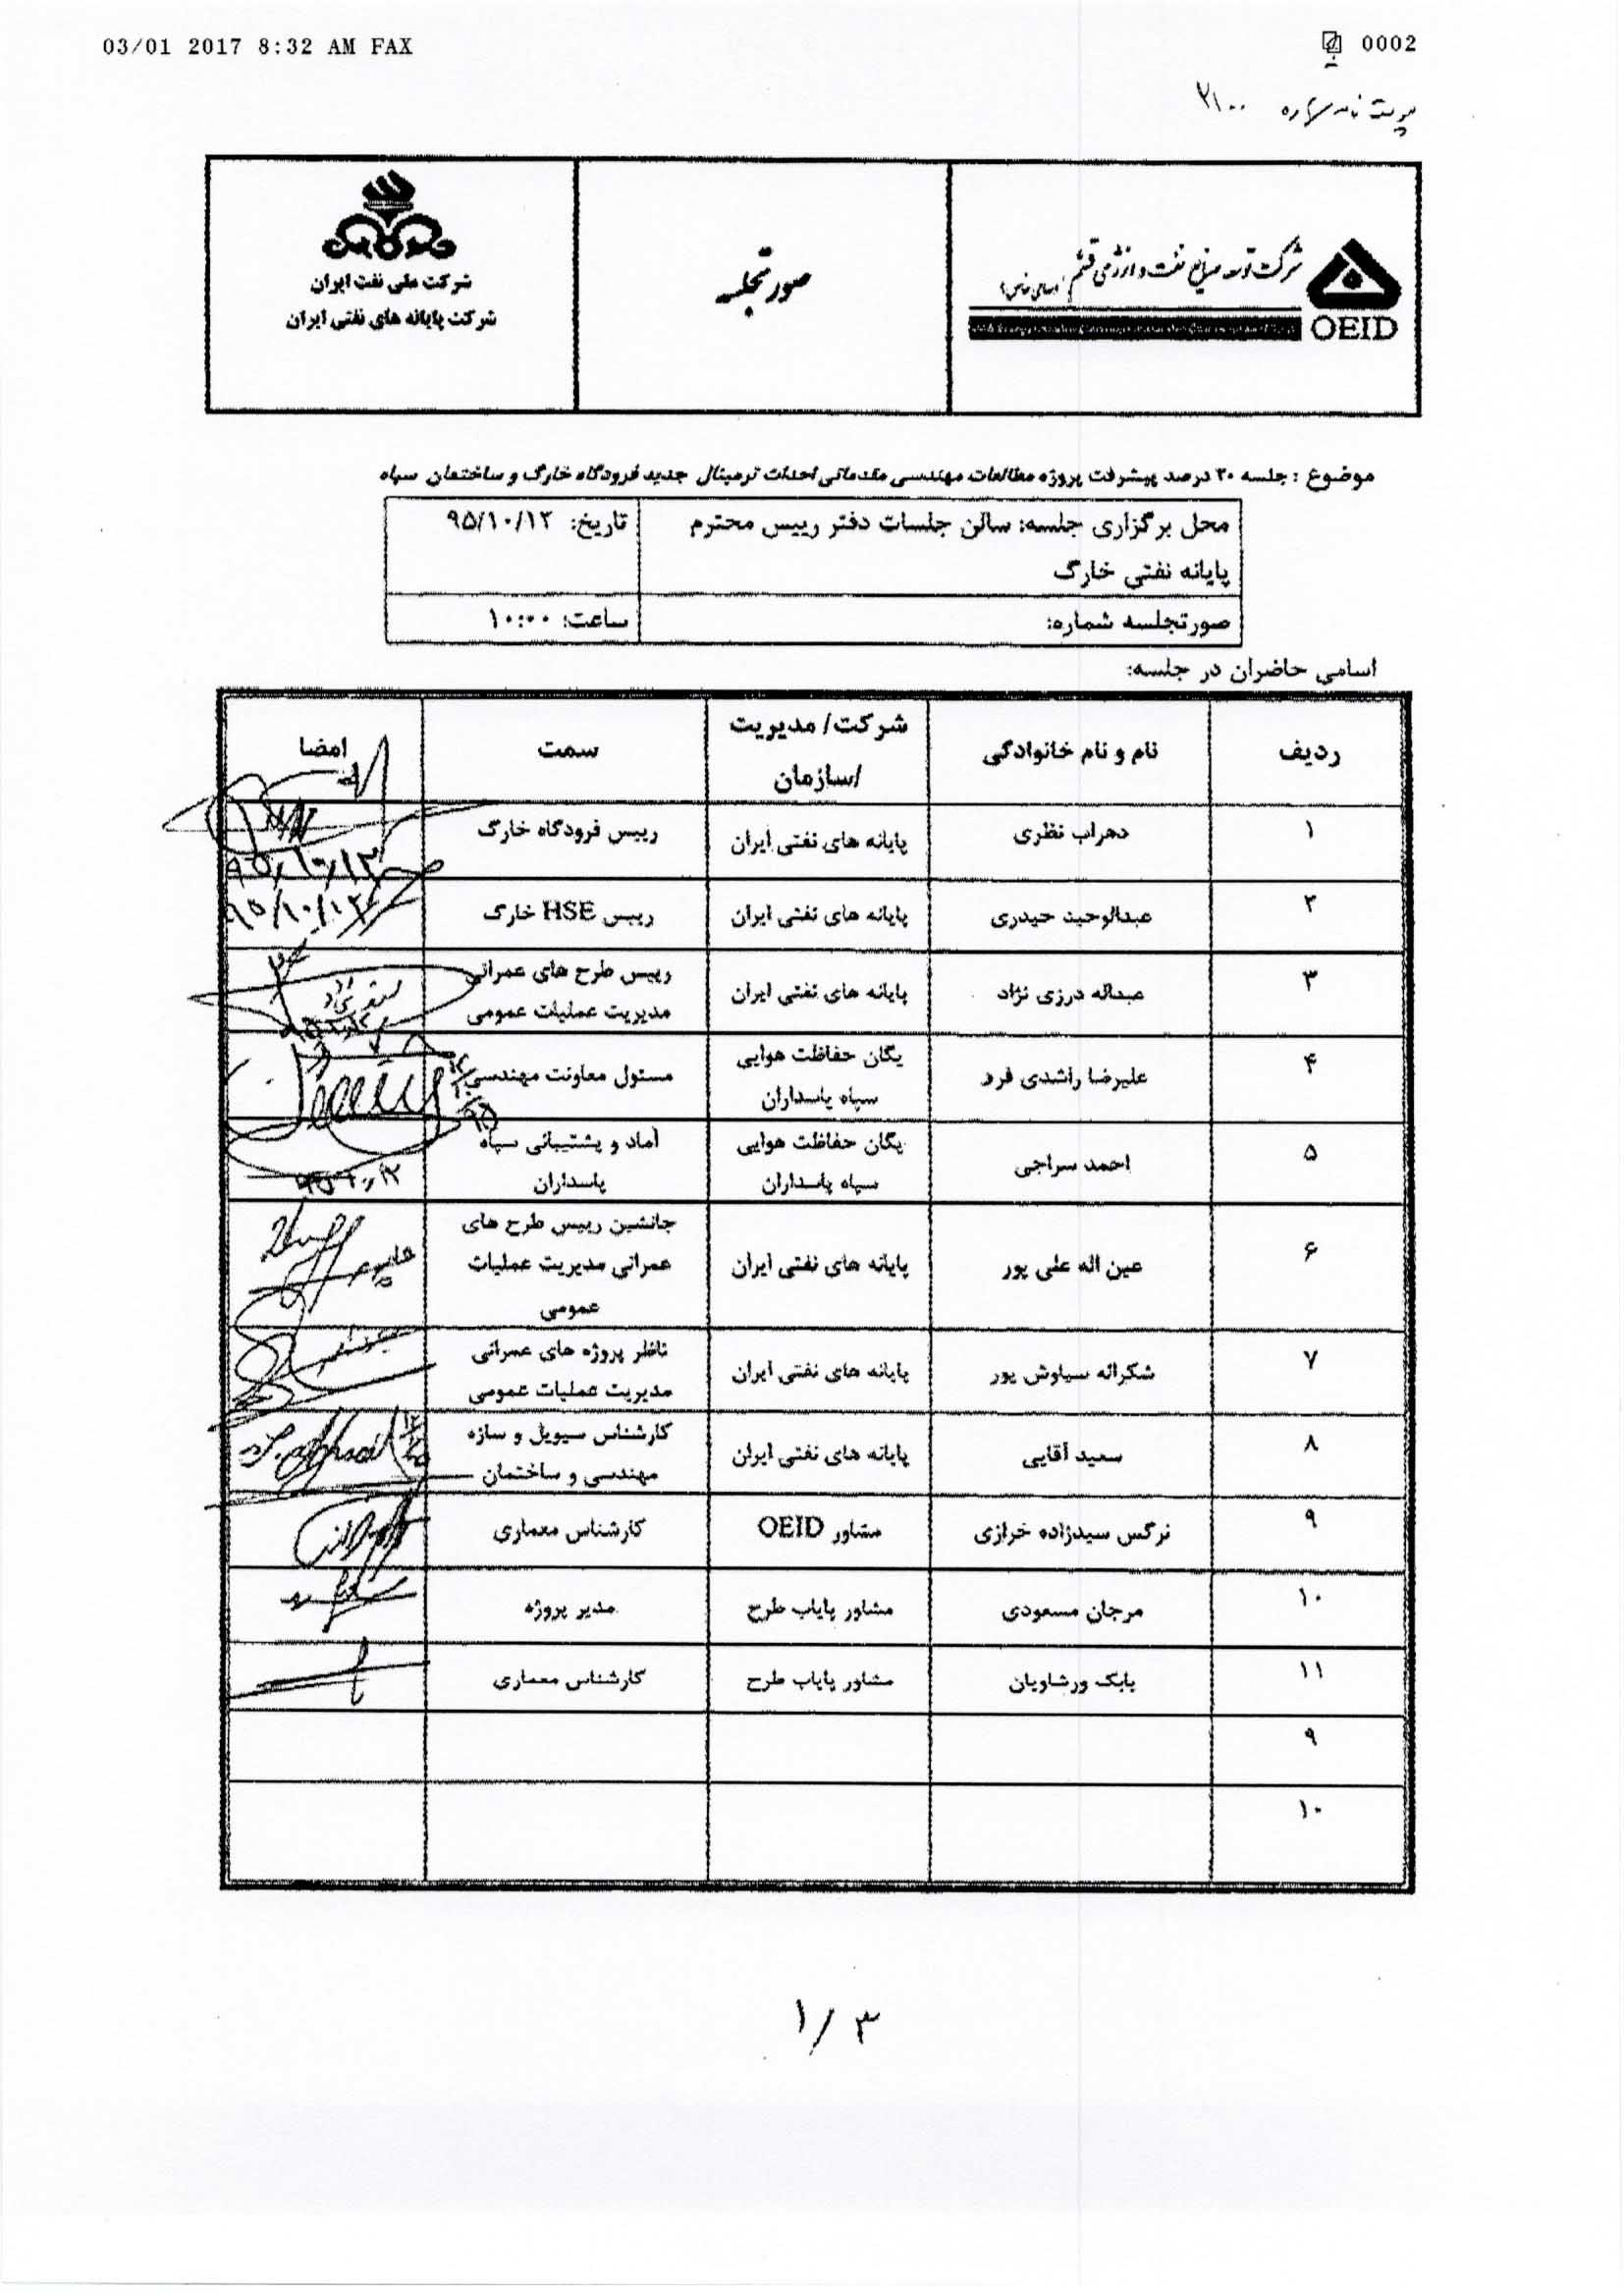 03/01 2017 8:32 AM FAX
0002
پیوست نامه شماره ۳۱۰۰
شرکت توسعه صنایع نفت و انرژی قشم (سهامی خاص)
OEID
صورتجلسه
شرکت ملی نفت ایران
شرکت پایانه های نفتی ایران
موضوع : جلسه ۲۰ درصد پیشرفت پروژه مطالعات مهندسی مقدماتی احداث ترمینال جدید فرودگاه خارگ و ساختمان سپاه
محل برگزاری جلسه: سالن جلسات دفتر رییس محترم
پایانه نفتی خارگ
تاریخ: ۹۵/۱۰/۱۲
صورتجلسه شماره:
ساعت: ۱۰:۰۰
اسامی حاضران در جلسه:
ردیف
نام و نام خانوادگی
شرکت/ مدیریت
/سازمان
سمت
امضا
۱
دهراب نظری
پایانه های نفتی ایران
رییس فرودگاه خارگ
۹۵/۱۰/۱۲
۲
عبدالوحید حیدری
پایانه های نفتی ایران
رییس HSE خارگ
۹۵/۱۰/۱۲
۳
عبداله درزی نژاد
پایانه های نفتی ایران
رییس طرح های عمرانی
مدیریت عملیات عمومی
۴
علیرضا راشدی فرد
یگان حفاظت هوایی
سپاه پاسداران
مسئول معاونت مهندسی
۵
احمد سراجی
یگان حفاظت هوایی
سپاه پاسداران
آماد و پشتیبانی سپاه
پاسداران
۹۵/۱۰/۱۲
۶
عین اله علی پور
پایانه های نفتی ایران
جانشین رییس طرح های
عمرانی مدیریت عملیات
عمومی
۷
شکراله سیاوش پور
پایانه های نفتی ایران
ناظر پروژه های عمرانی
مدیریت عملیات عمومی
۸
سعید آقایی
پایانه های نفتی ایران
کارشناس سیویل و سازه
مهندسی و ساختمان
۹
نرگس سیدزاده خرازی
مشاور OEID
کارشناس معماری
۱۰
مرجان مسعودی
مشاور پایاب طرح
مدیر پروژه
۱۱
بابک ورشاویان
مشاور پایاب طرح
کارشناس معماری
۹
۱۰
۱/۳